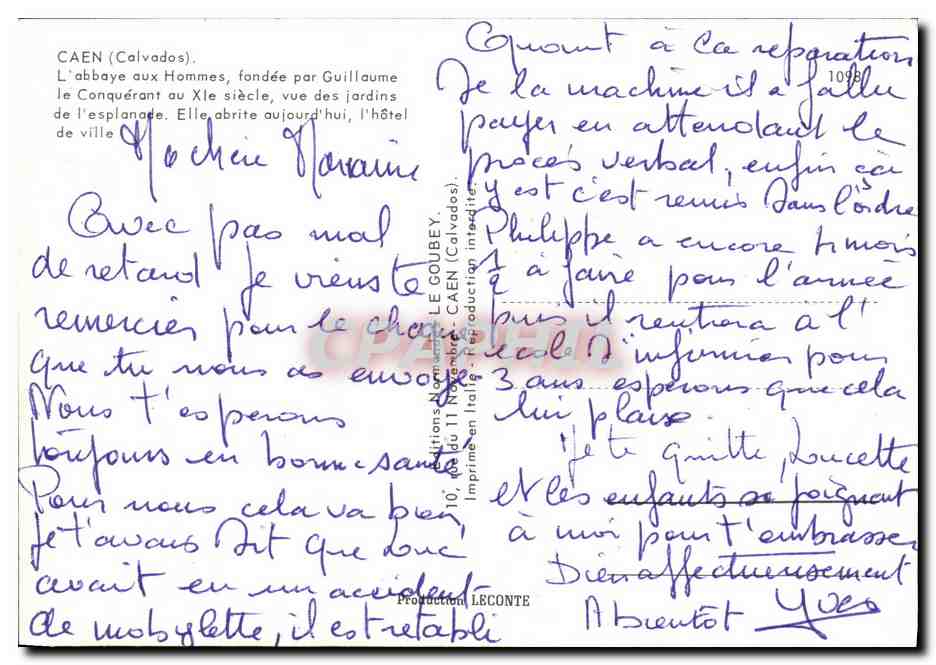 CAEN (Calvados).
L'abbaye aux Hommes, fondée par Guillaume
le Conquérant au XIe siècle, vue des jardins
de l'esplanade. Elle abrite aujourd'hui, l'hôtel
de ville
Ma chère Marraine
Avec pas mal
de retard je viens te
remercier pour le chèque
que tu nous as envoyé.
Nous t'esperons
toujours en bonne santé
Pour nous cela va bien,
je t'avais dit que Luc
avait eu un accident
de mobylette, il est rétabli
Editions Normandes LE GOUBEY.
10, rue du 11 Novembre - CAEN (Calvados).
Imprimé en Italie - Reproduction interdite.
CPAPHIL
Production LECONTE
1098
Quant à la reparation
de la machine il a fallu
payer en attendant le
procès verbal, enfin ça
y est c'est remis dans l'ordre
Philippe a encore 4 mois
1/2 à faire pour l'armée
puis il rentrera à l'
école d'infirmier pour
3 ans esperons que cela
lui plaise.
Je te quitte, Loucette
et les enfants se joignent
à moi pour t'embrasser
Bien affectueusement
A bientôt Yves